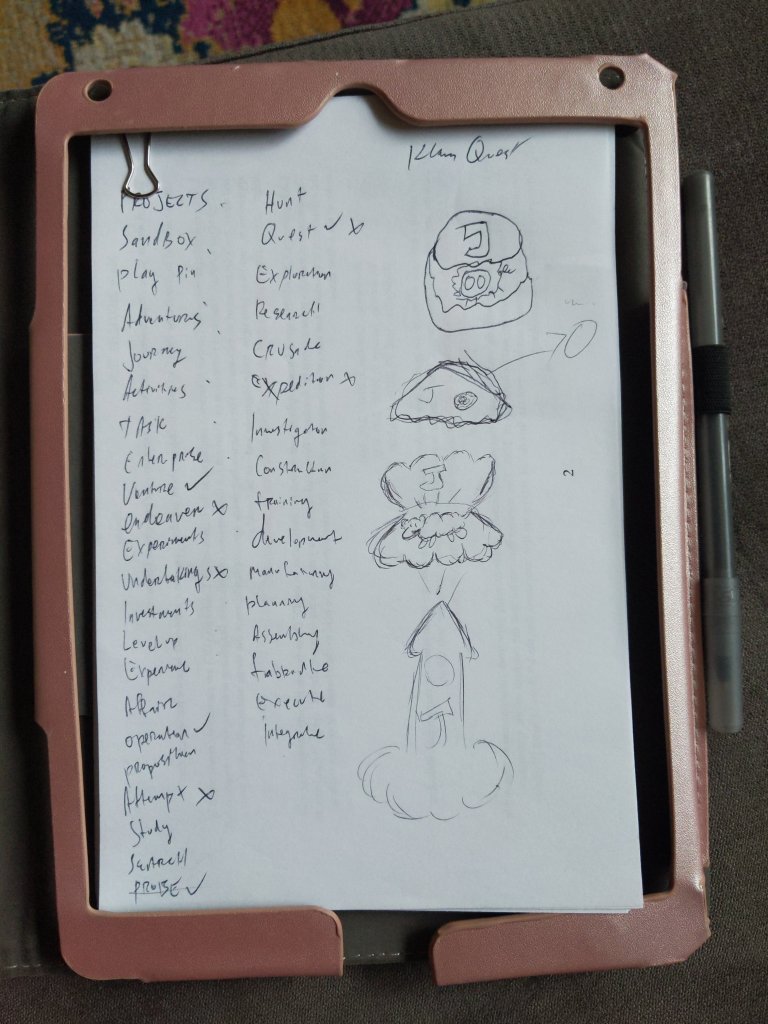 Quest
PROJECTS.
SandBox.
play pin
Adventures
Journey
Activities
TASK
Enterprise
Venture ✓
endeaver x
Experiments
Undertakings x
Investments
Level up
Affairs
operation ✓
proposition
Attempt x
Study
Search
PROBE ✓
Hunt
Quest ✓ x
Exploration
Research
CRUSade
Expedition x
Investigation
Construction
training
development
planning
Assembling
Execute
Integrate
J
J
J
J
2